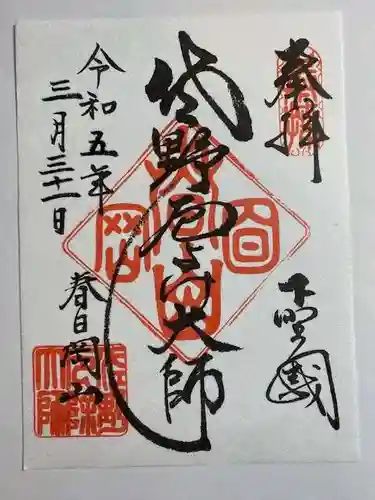 奉拝
下野國
佐野厄よけ大師
令和五年
三月三十一日
春日岡山